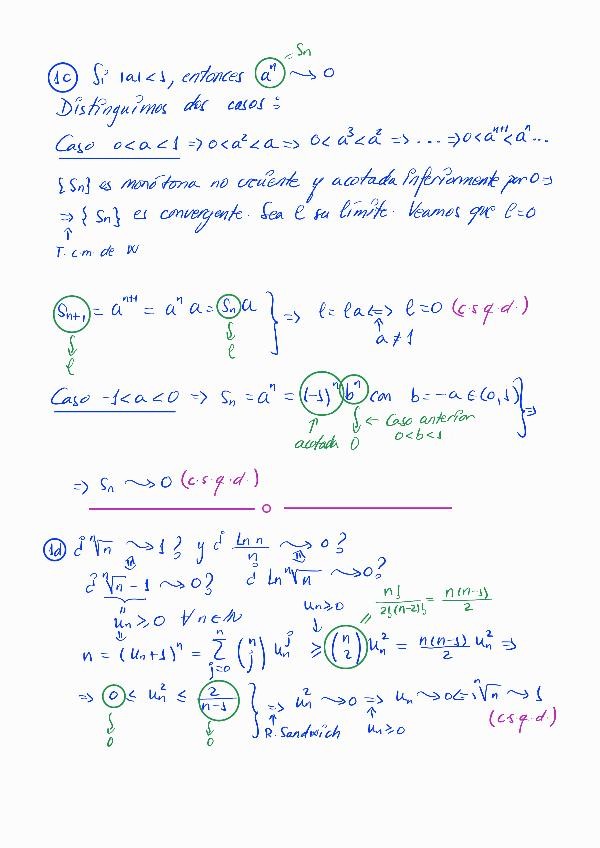 1c Si |a| < 1, entonces aⁿ ⤳ 0
= Sn
Distinguimos dos casos:
Caso 0 < a < 1 ⇒ 0 < a² < a ⇒ 0 < a³ < a² ⇒ ... ⇒ 0 < aⁿ⁺¹ < aⁿ ...
{Sn} es monótona no creciente y acotada inferiormente por 0 ⇒
⇒ {Sn} es convergente. Sea l su límite. Veamos que l = 0
↑
T.c.m. de W
Sn+1 = aⁿ⁺¹ = aⁿ a = Sn a } ⇒ l = l a ⇔ l = 0 (c.s.q.d.)
l l ↑ a ≠ 1
Caso -1 < a < 0 ⇒ Sn = aⁿ = (-1)ⁿ bⁿ con b = -a ∈ (0,1) } ⇒
↑ ← Caso anterior
acotada 0 0 < b < 1
⇒ Sn ⤳ 0 (c.s.q.d.)
1d ¿ ⁿ√n ⤳ 1? y ¿ Ln n / n ⤳ 0?
¿ ⁿ√n - 1 ⤳ 0? ¿ Ln ⁿ√n ⤳ 0?
un ≥ 0 ∀n ∈ ℕ un ≥ 0 n! / 2!(n-2)! = n(n-1) / 2
n = (un + 1)ⁿ = Σ j=0 n (n j) unʲ ≥ (n 2) un² = n(n-1)/2 un² ⇒
⇒ 0 ≤ un² ≤ 2/(n-1) } ⇒ un² ⤳ 0 ⇒ un ⤳ 0 ⇔ ⁿ√n ⤳ 1
0 0 R. Sandwich un ≥ 0 (c.s.q.d.)